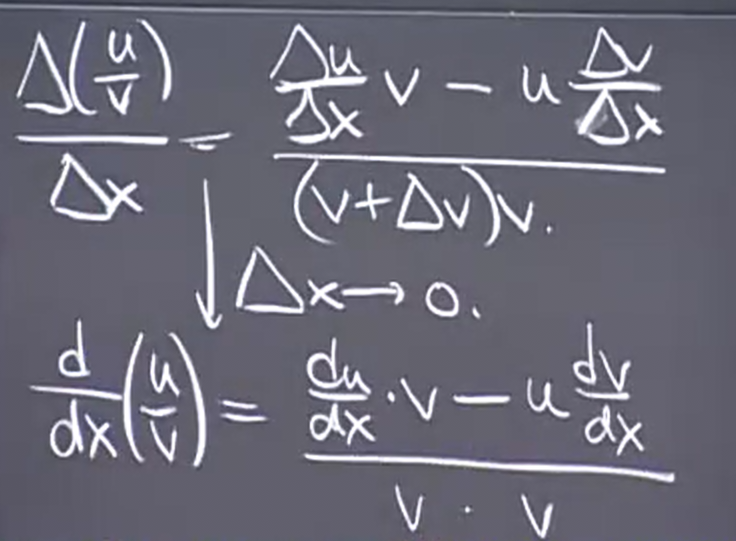 Δ(u/v)/Δx = (Δu/Δx v − u Δv/Δx)/((v+Δv)v.)
↓ Δx→0.
d/dx(u/v) = (du/dx · v − u dv/dx)/(v · v)